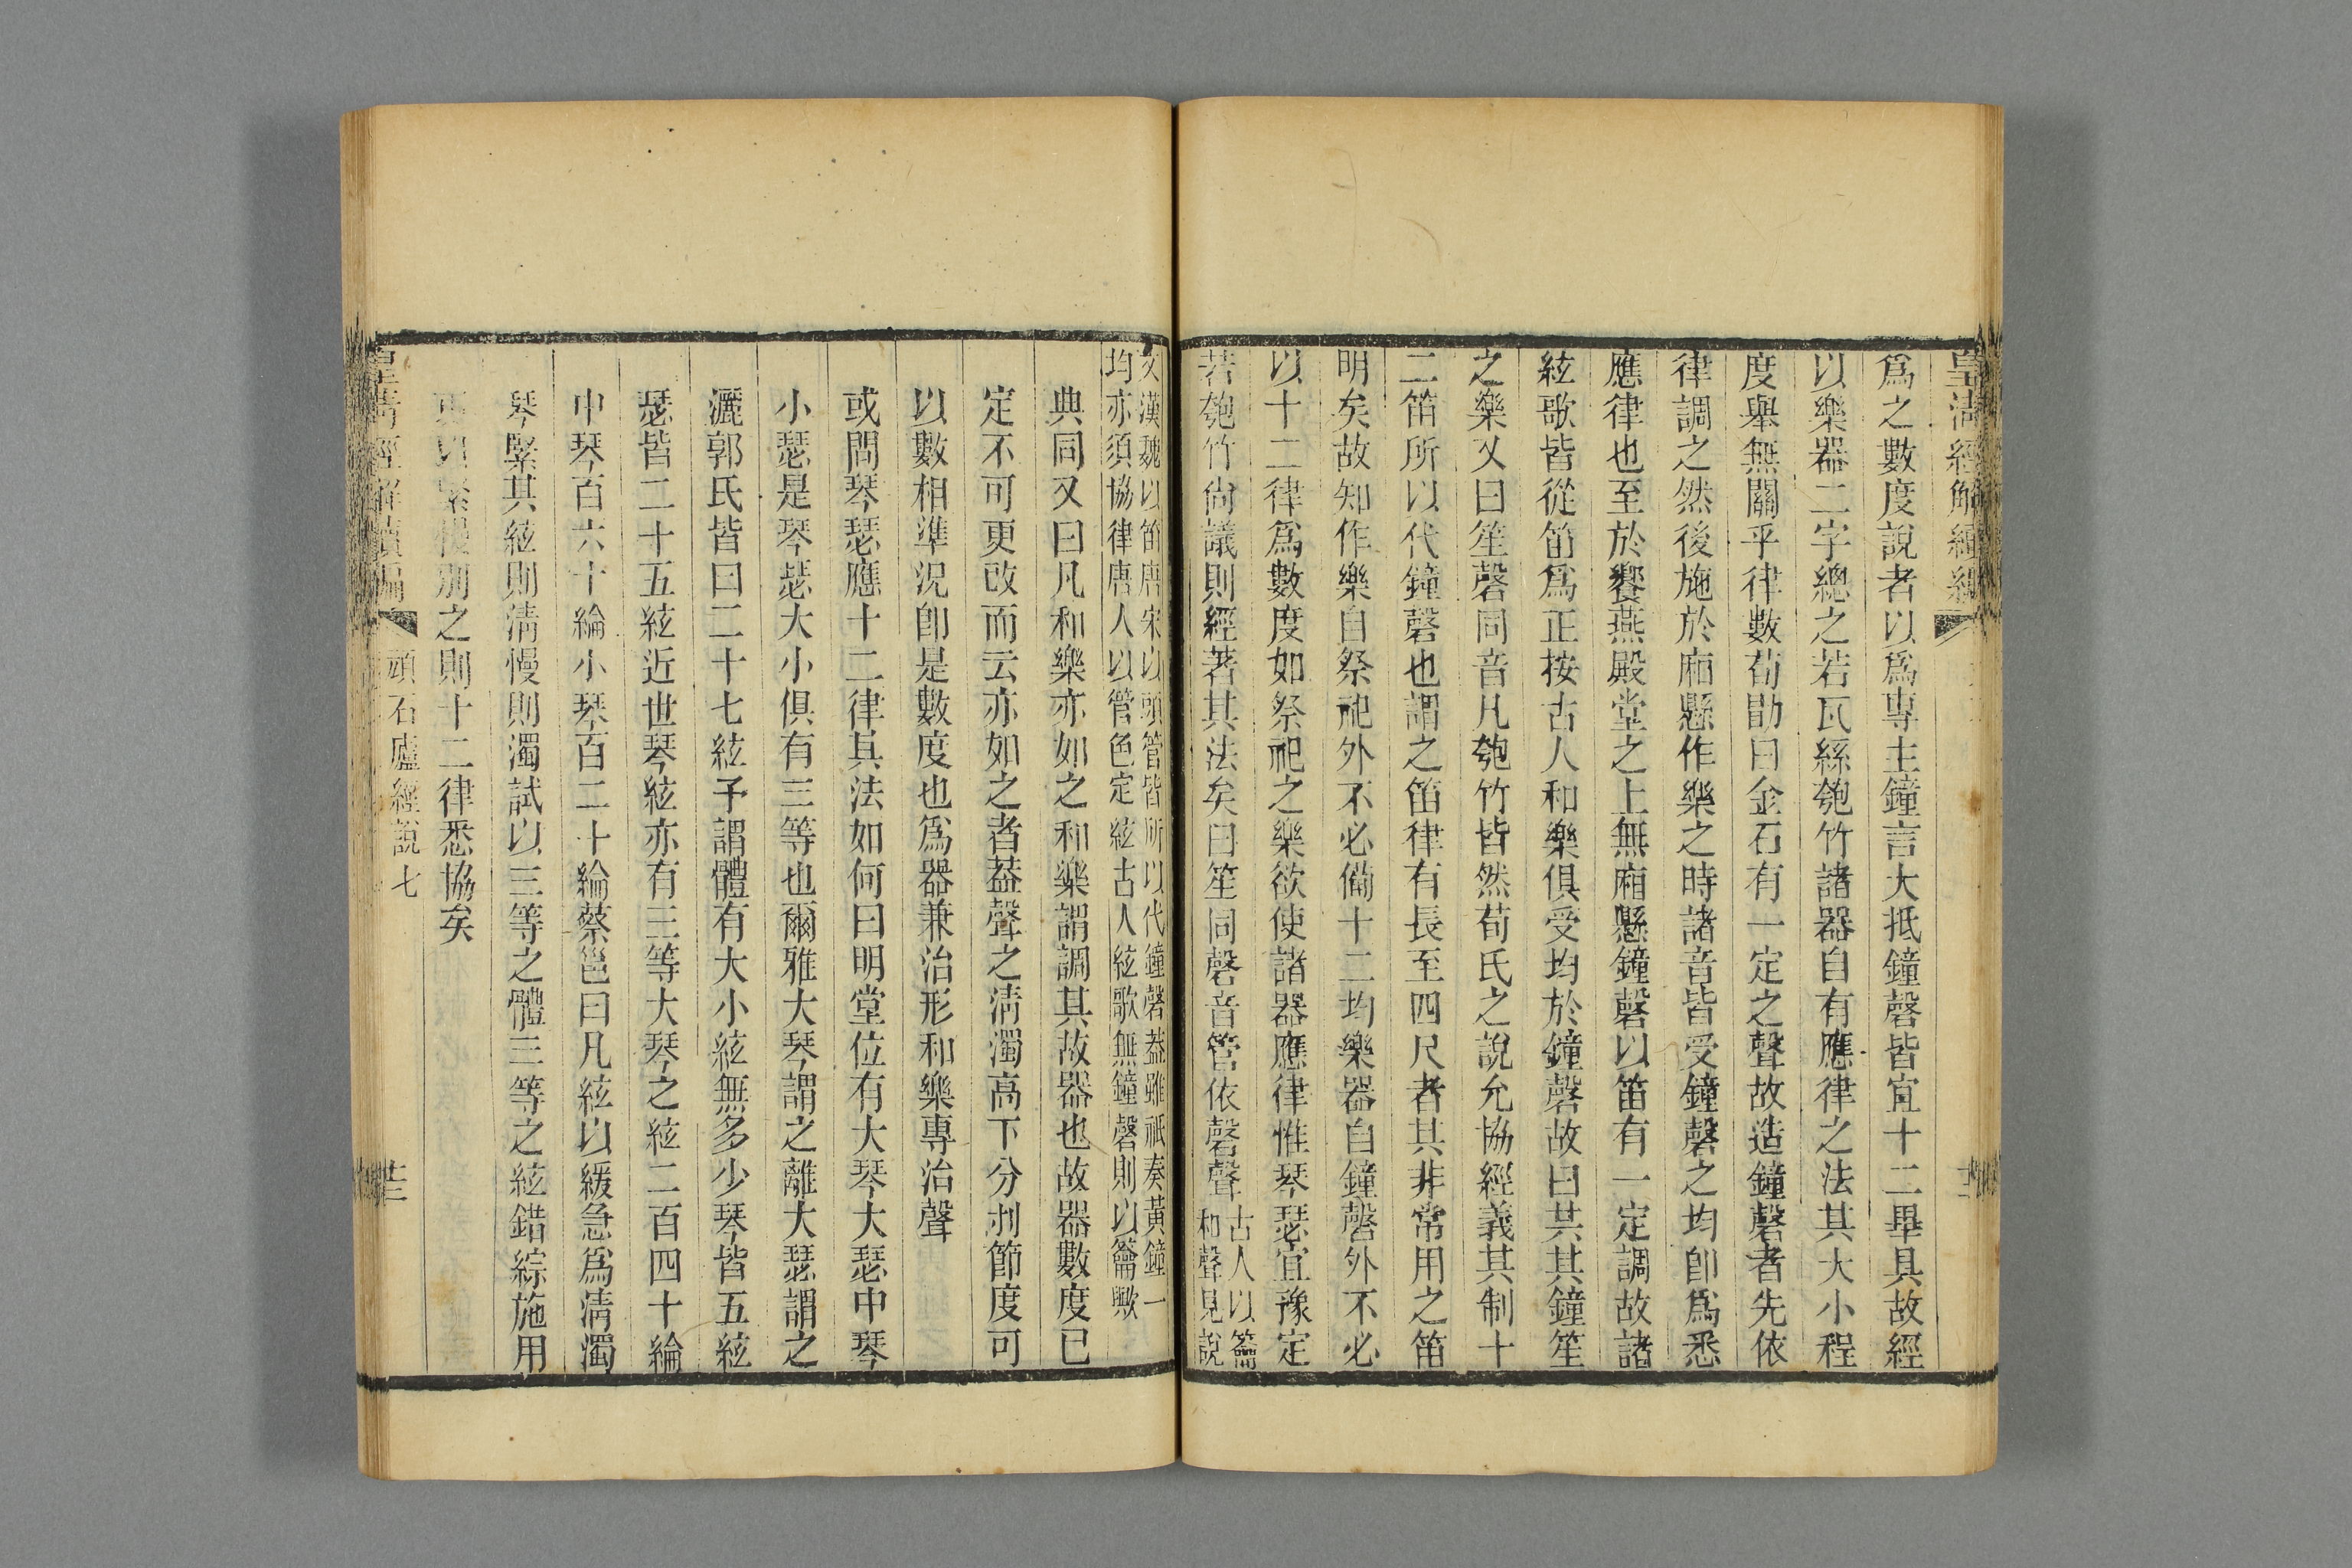 皇清經解續編
爲之數度說者以爲專主鐘言大抵鐘磬皆宜十二畢具故經
以樂器二字總之若瓦絲匏竹諸器自有應律之法其大小程
度舉無關乎律數荀勖曰金石有一定之聲故造鐘磬者先依
律調之然後施於廂懸作樂之時諸音皆受鐘磬之均卽爲悉
應律也至於饗燕殿堂之上無廂懸鐘磬以笛有一定調故諸
絃歌皆從笛爲正按古人和樂俱受均於鐘磬故曰共其鐘笙
之樂又曰笙磬同音凡匏竹皆然荀氏之說允協經義其制十
二笛所以代鐘磬也謂之笛律有長至四尺者其非常用之笛
明矣故知作樂自祭祀外不必備十二均樂器自鐘磬外不必
以十二律爲數度如祭祀之樂欲使諸器應律惟琴瑟宜豫定
若匏竹尙議則經著其法矣曰笙同磬音管依磬聲
古人以籥
和聲見說
文漢魏以笛唐宋以頭管皆所以代鐘磬葢雖祇奏黃鐘一
均亦須協律唐人以管色定絃古人絃歌無鐘磬則以籥歟
典同又曰凡和樂亦如之和樂謂調其故器也故器數度已
定不可更改而云亦如之者葢聲之清濁高下分刌節度可
以數相準況卽是數度也爲器兼治形和樂專治聲
或問琴瑟應十二律其法如何曰明堂位有大琴大瑟中琴
小瑟是琴瑟大小俱有三等也爾雅大琴謂之離大瑟謂之
灑郭氏皆曰二十七絃予謂體有大小絃無多少琴皆五絃
瑟皆二十五絃近世琴絃亦有三等大琴之絃二百四十綸
中琴百六十綸小琴百二十綸蔡邕曰凡絃以緩急爲清濁
琴緊其絃則清慢則濁試以三等之體三等之絃錯綜施用
更以緊慢別之則十二律悉協矣
皇清經解續編
頑石廬經說七